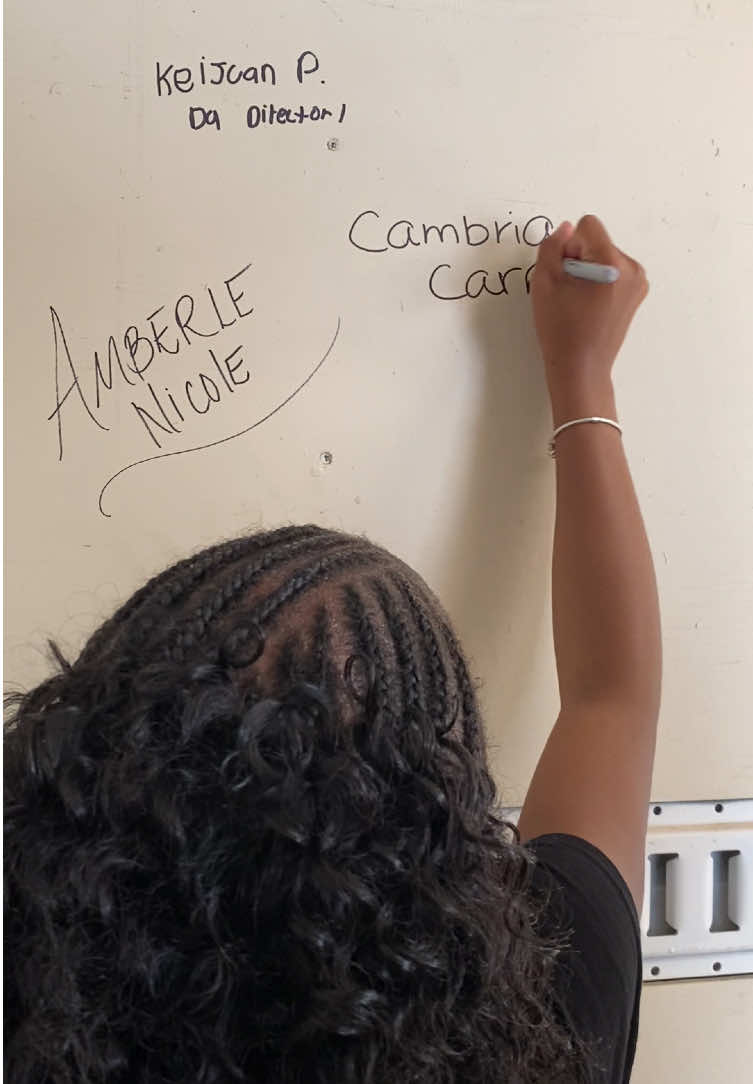 KeiJuan P.
Da Director!
Cambria
AMBERLE
NICOLE